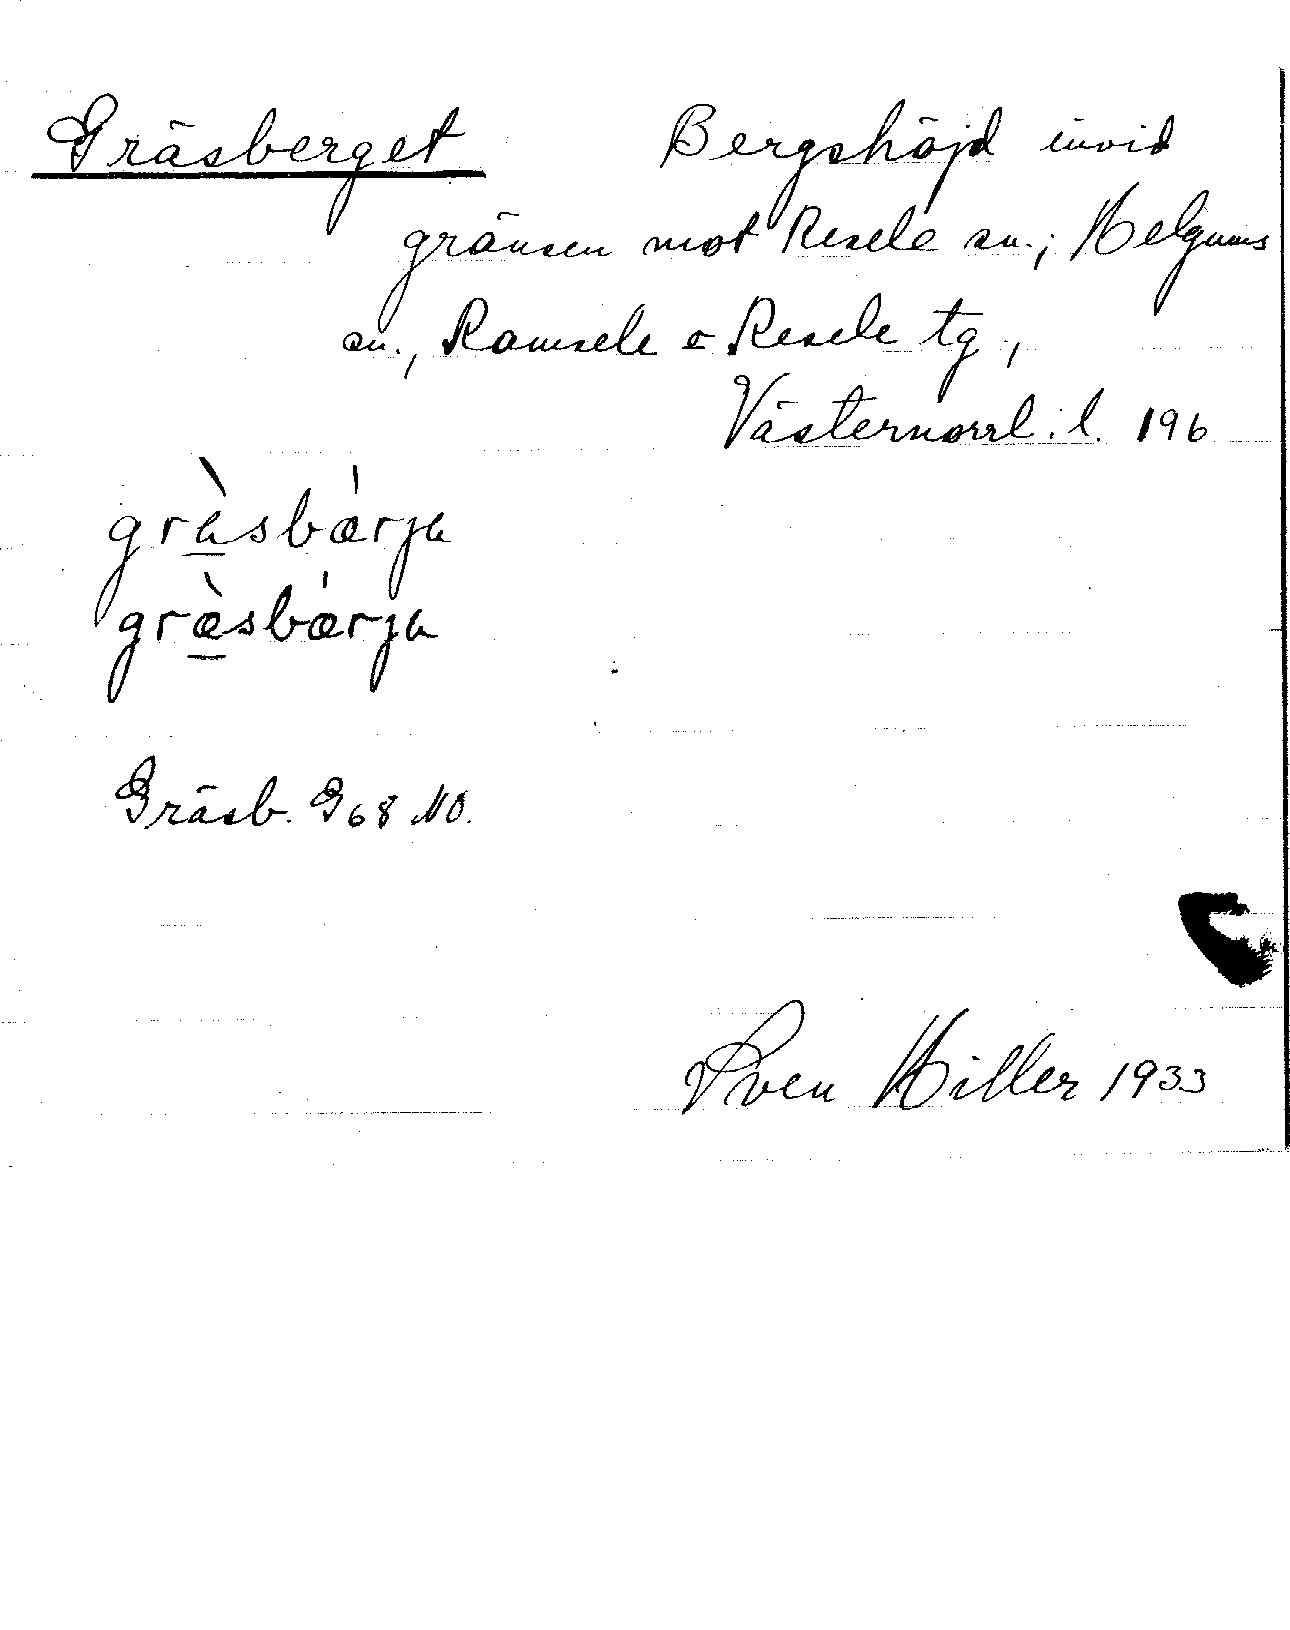 Gräsberget Bergshöjd invid
gränsen mot Resele sn.; Helgums
sn., Ramsele o Resele tg,
Västernorrl. l. 196
gràsbárja
græ̀sbárja
Gräsb. G68 NO.
Sven Hiller 1933